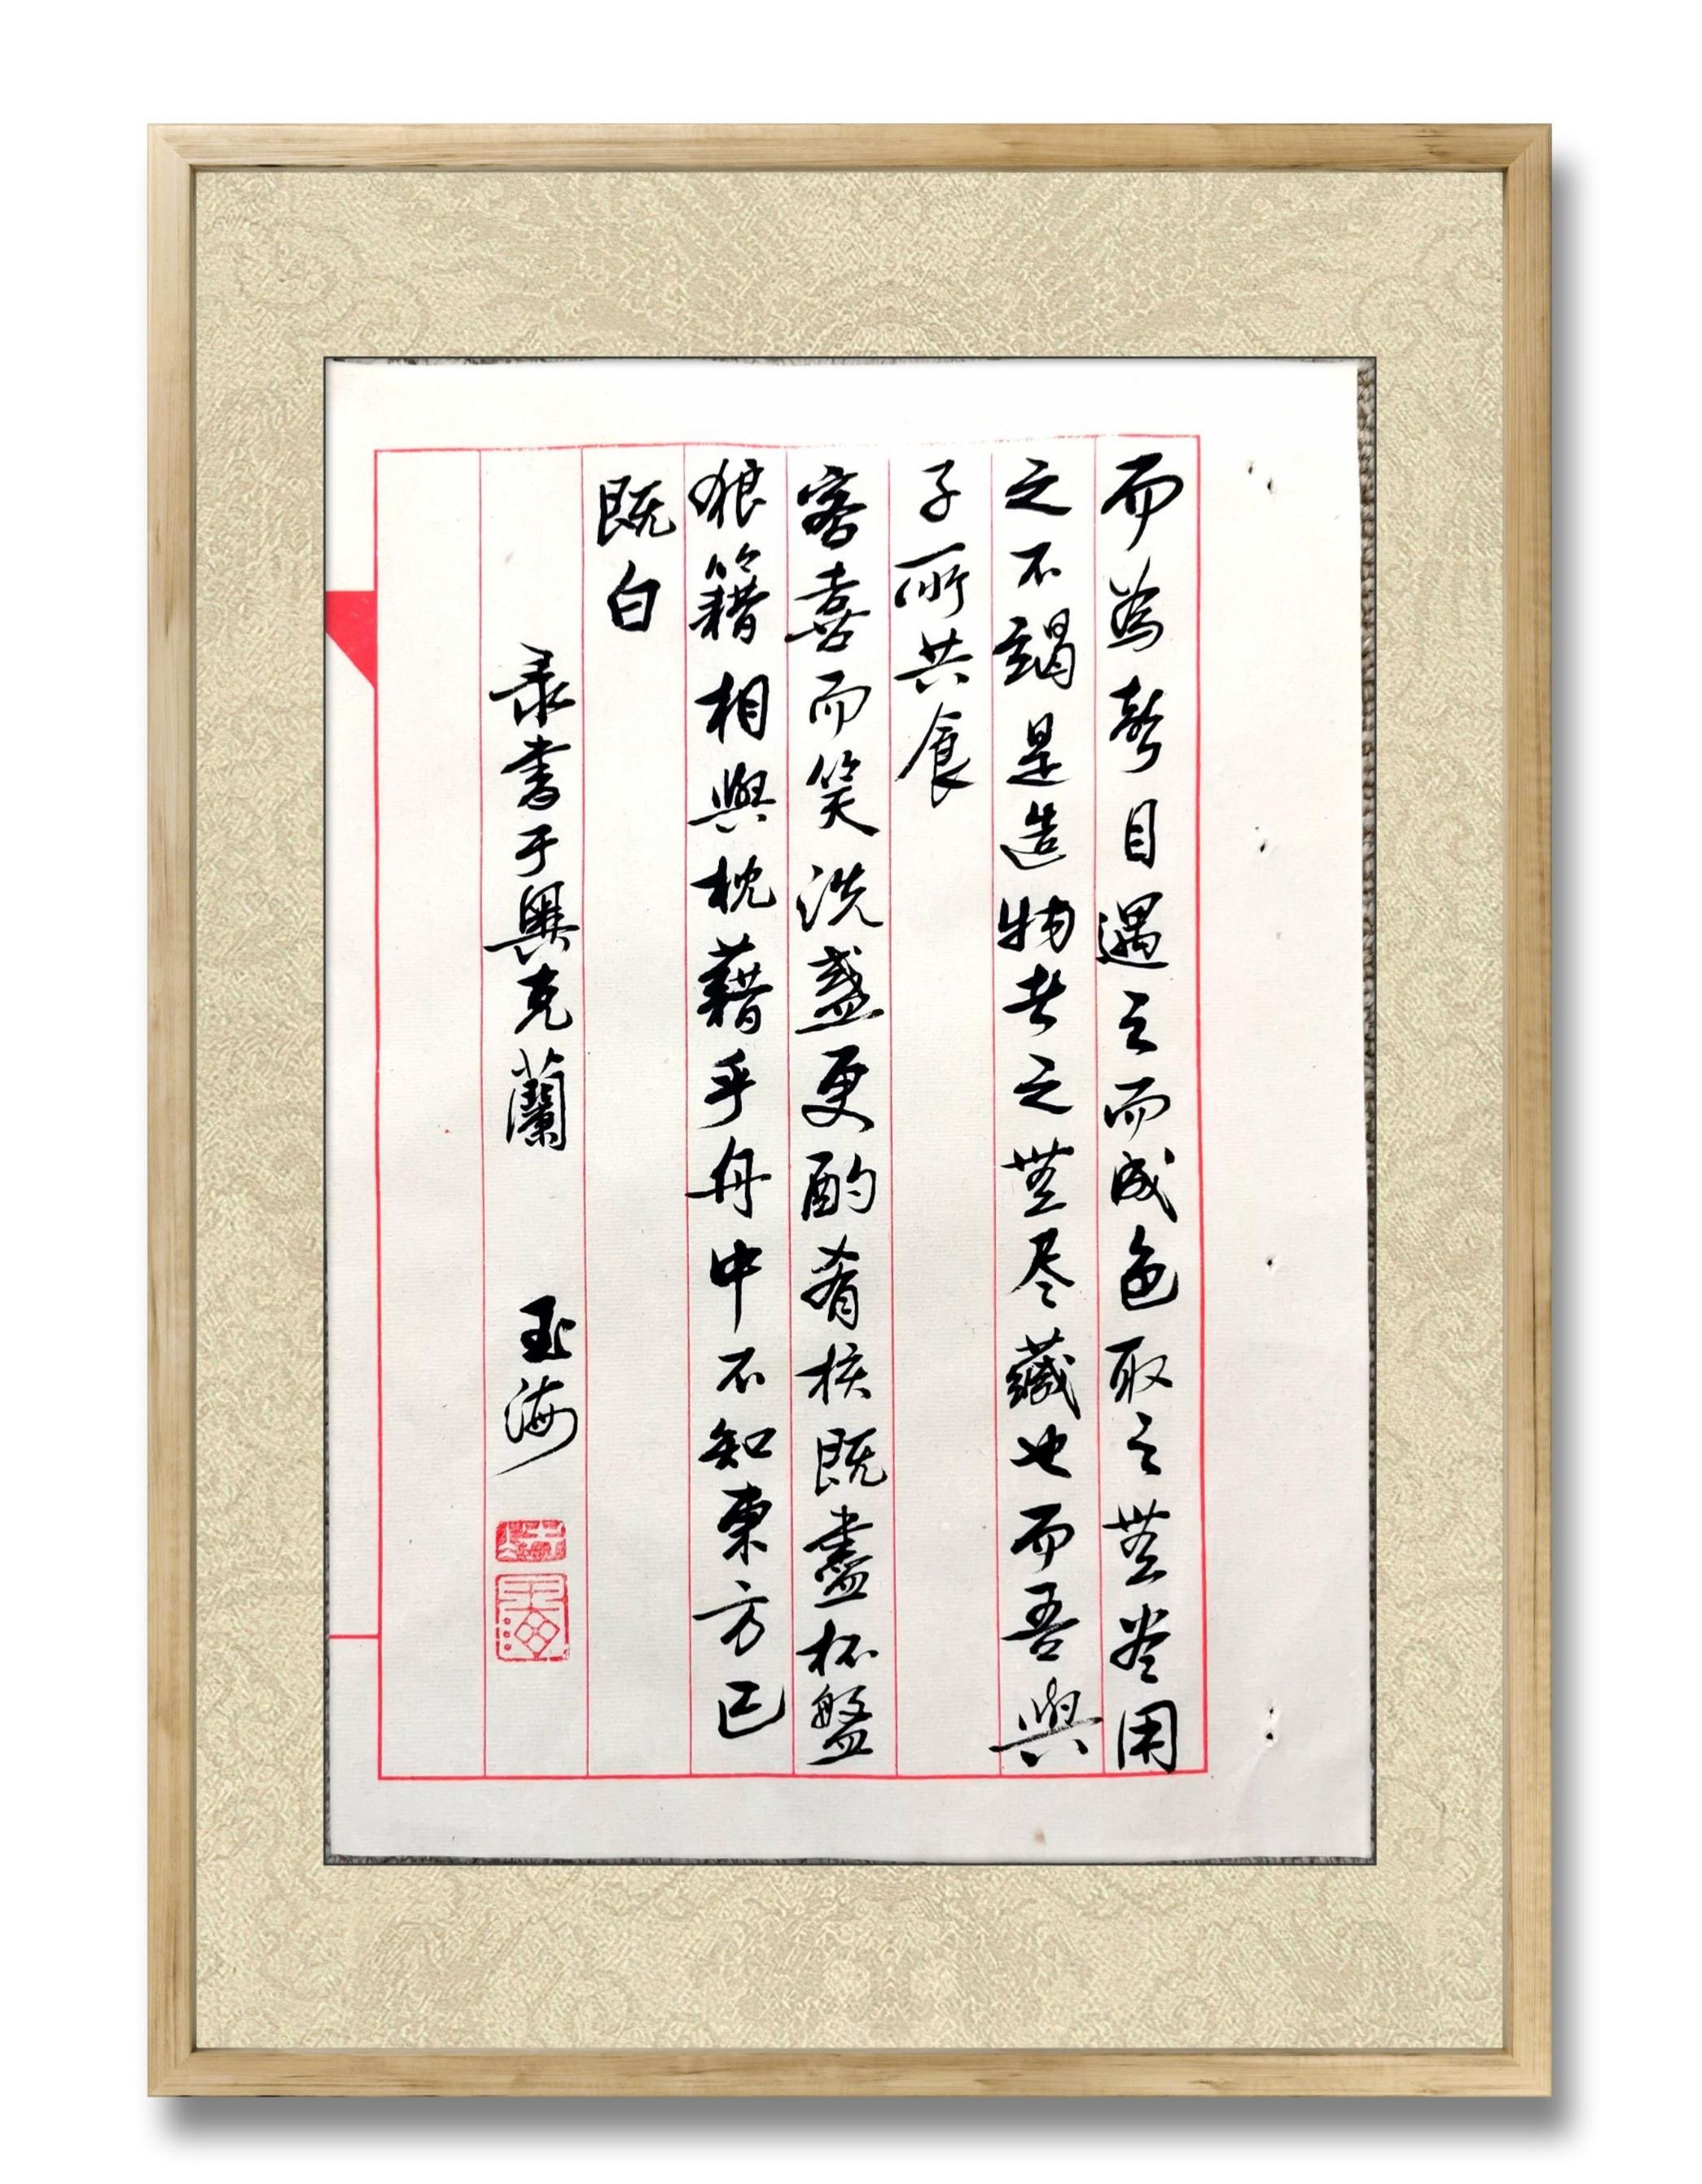 而為聲目遇之而成色取之無盡用
之不竭是造物者之無尽藏也而吾與
子所共食
客喜而笑洗盞更酌肴核既盡杯盤
狼籍相與枕藉乎舟中不知東方已
既白
录書于奥克蘭 玉海